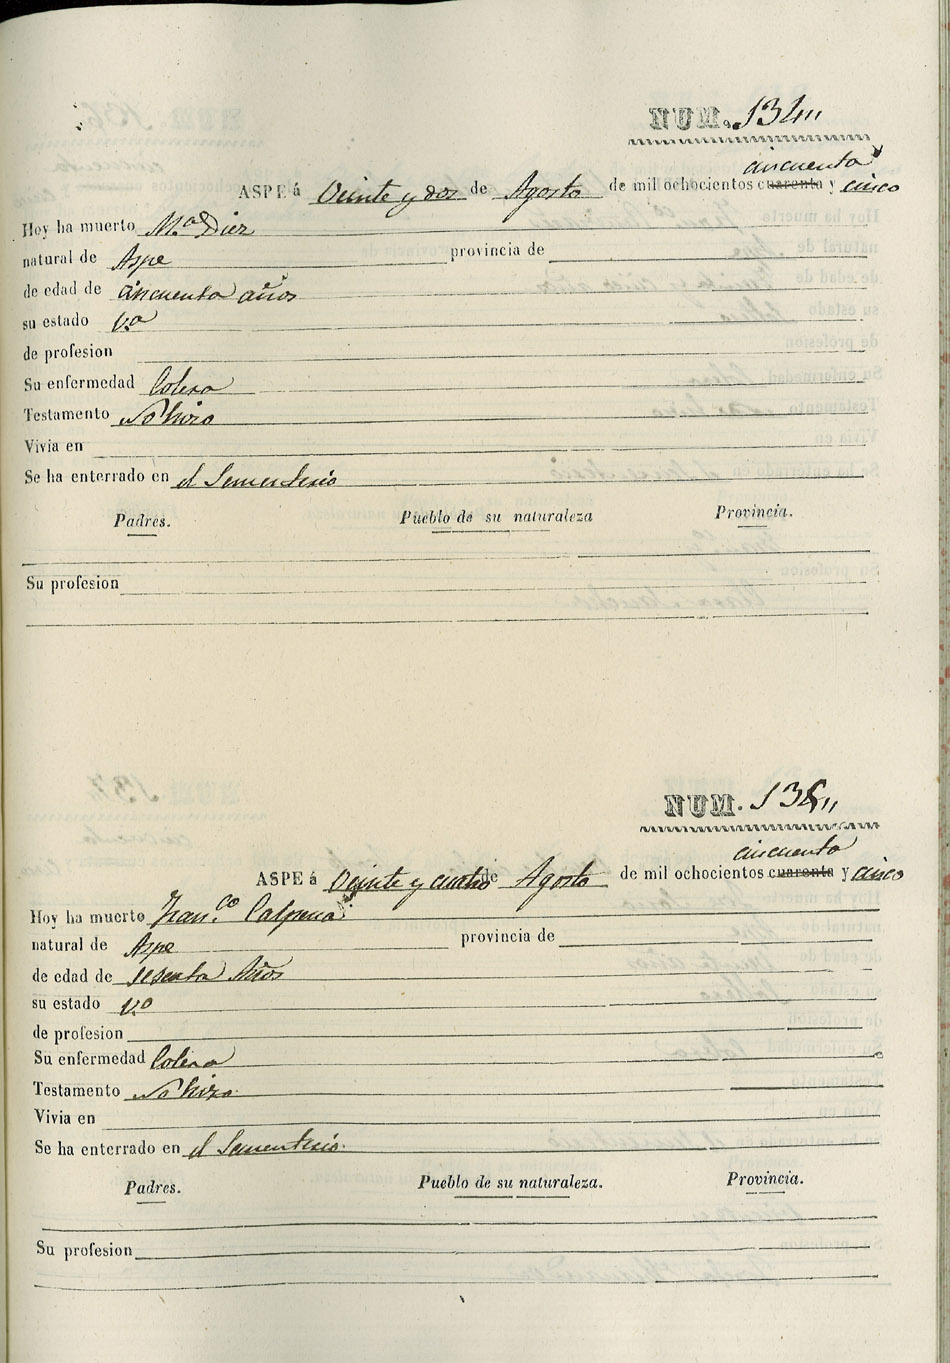 NUM. 134,,
cincuenta
ASPE á Veinte y dos de Agosto de mil ochocientos cuarenta y cinco
Hoy ha muerto M.ª Diez
natural de Aspe provincia de
de edad de cincuenta años
su estado V.ª
de profesion
Su enfermedad Colera
Testamento No hizo
Vivia en
Se ha enterrado en el Sementerio
Padres. Pueblo de su naturaleza Provincia.
Su profesion
NUM. 135,,
cincuenta
ASPE á Veinte y cuatro de Agosto de mil ochocientos cuarenta y cinco
Hoy ha muerto Fran.co Calpena
natural de Aspe provincia de
de edad de sesenta Años
su estado V.º
de profesion
Su enfermedad Colera
Testamento No hizo
Vivia en
Se ha enterrado en el Sementerio
Padres. Pueblo de su naturaleza. Provincia.
Su profesion